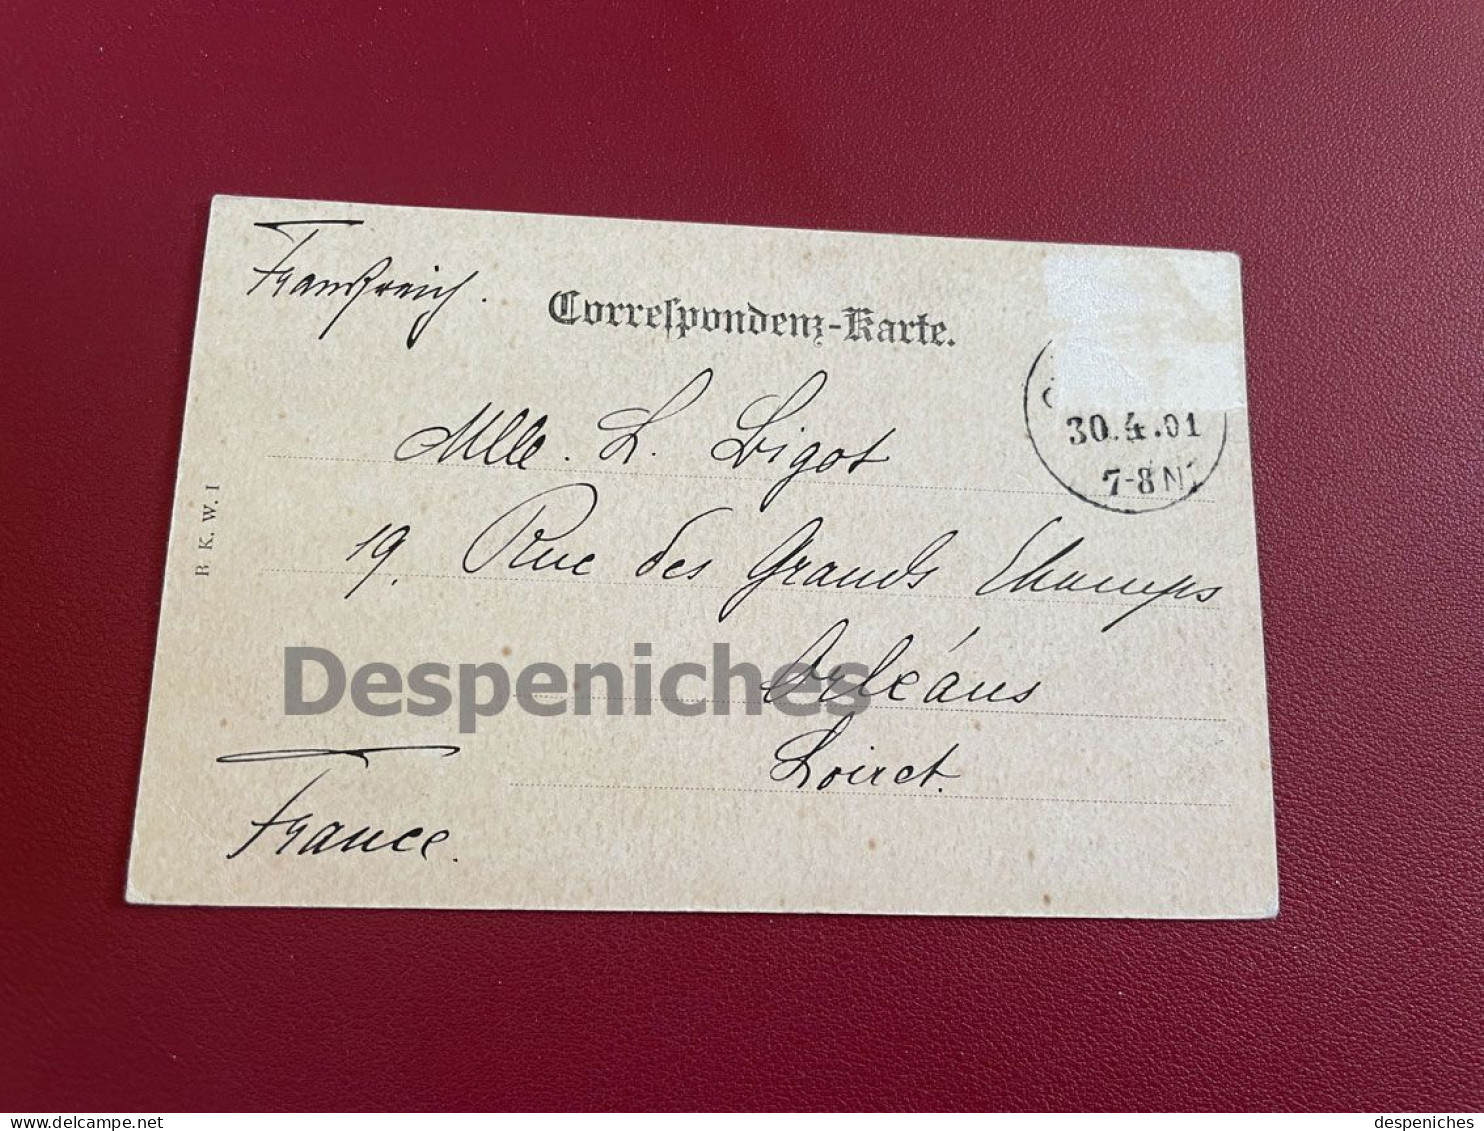 Frankreich.
Correspondenz-Karte.
30.4.01
7-8 N
Mlle. L. Bigot
19, Rue des Grands Champs
Orléans
Loiret.
France.
B. K. W. I
Despeniches
posted for www.delcampe.net
despeniches